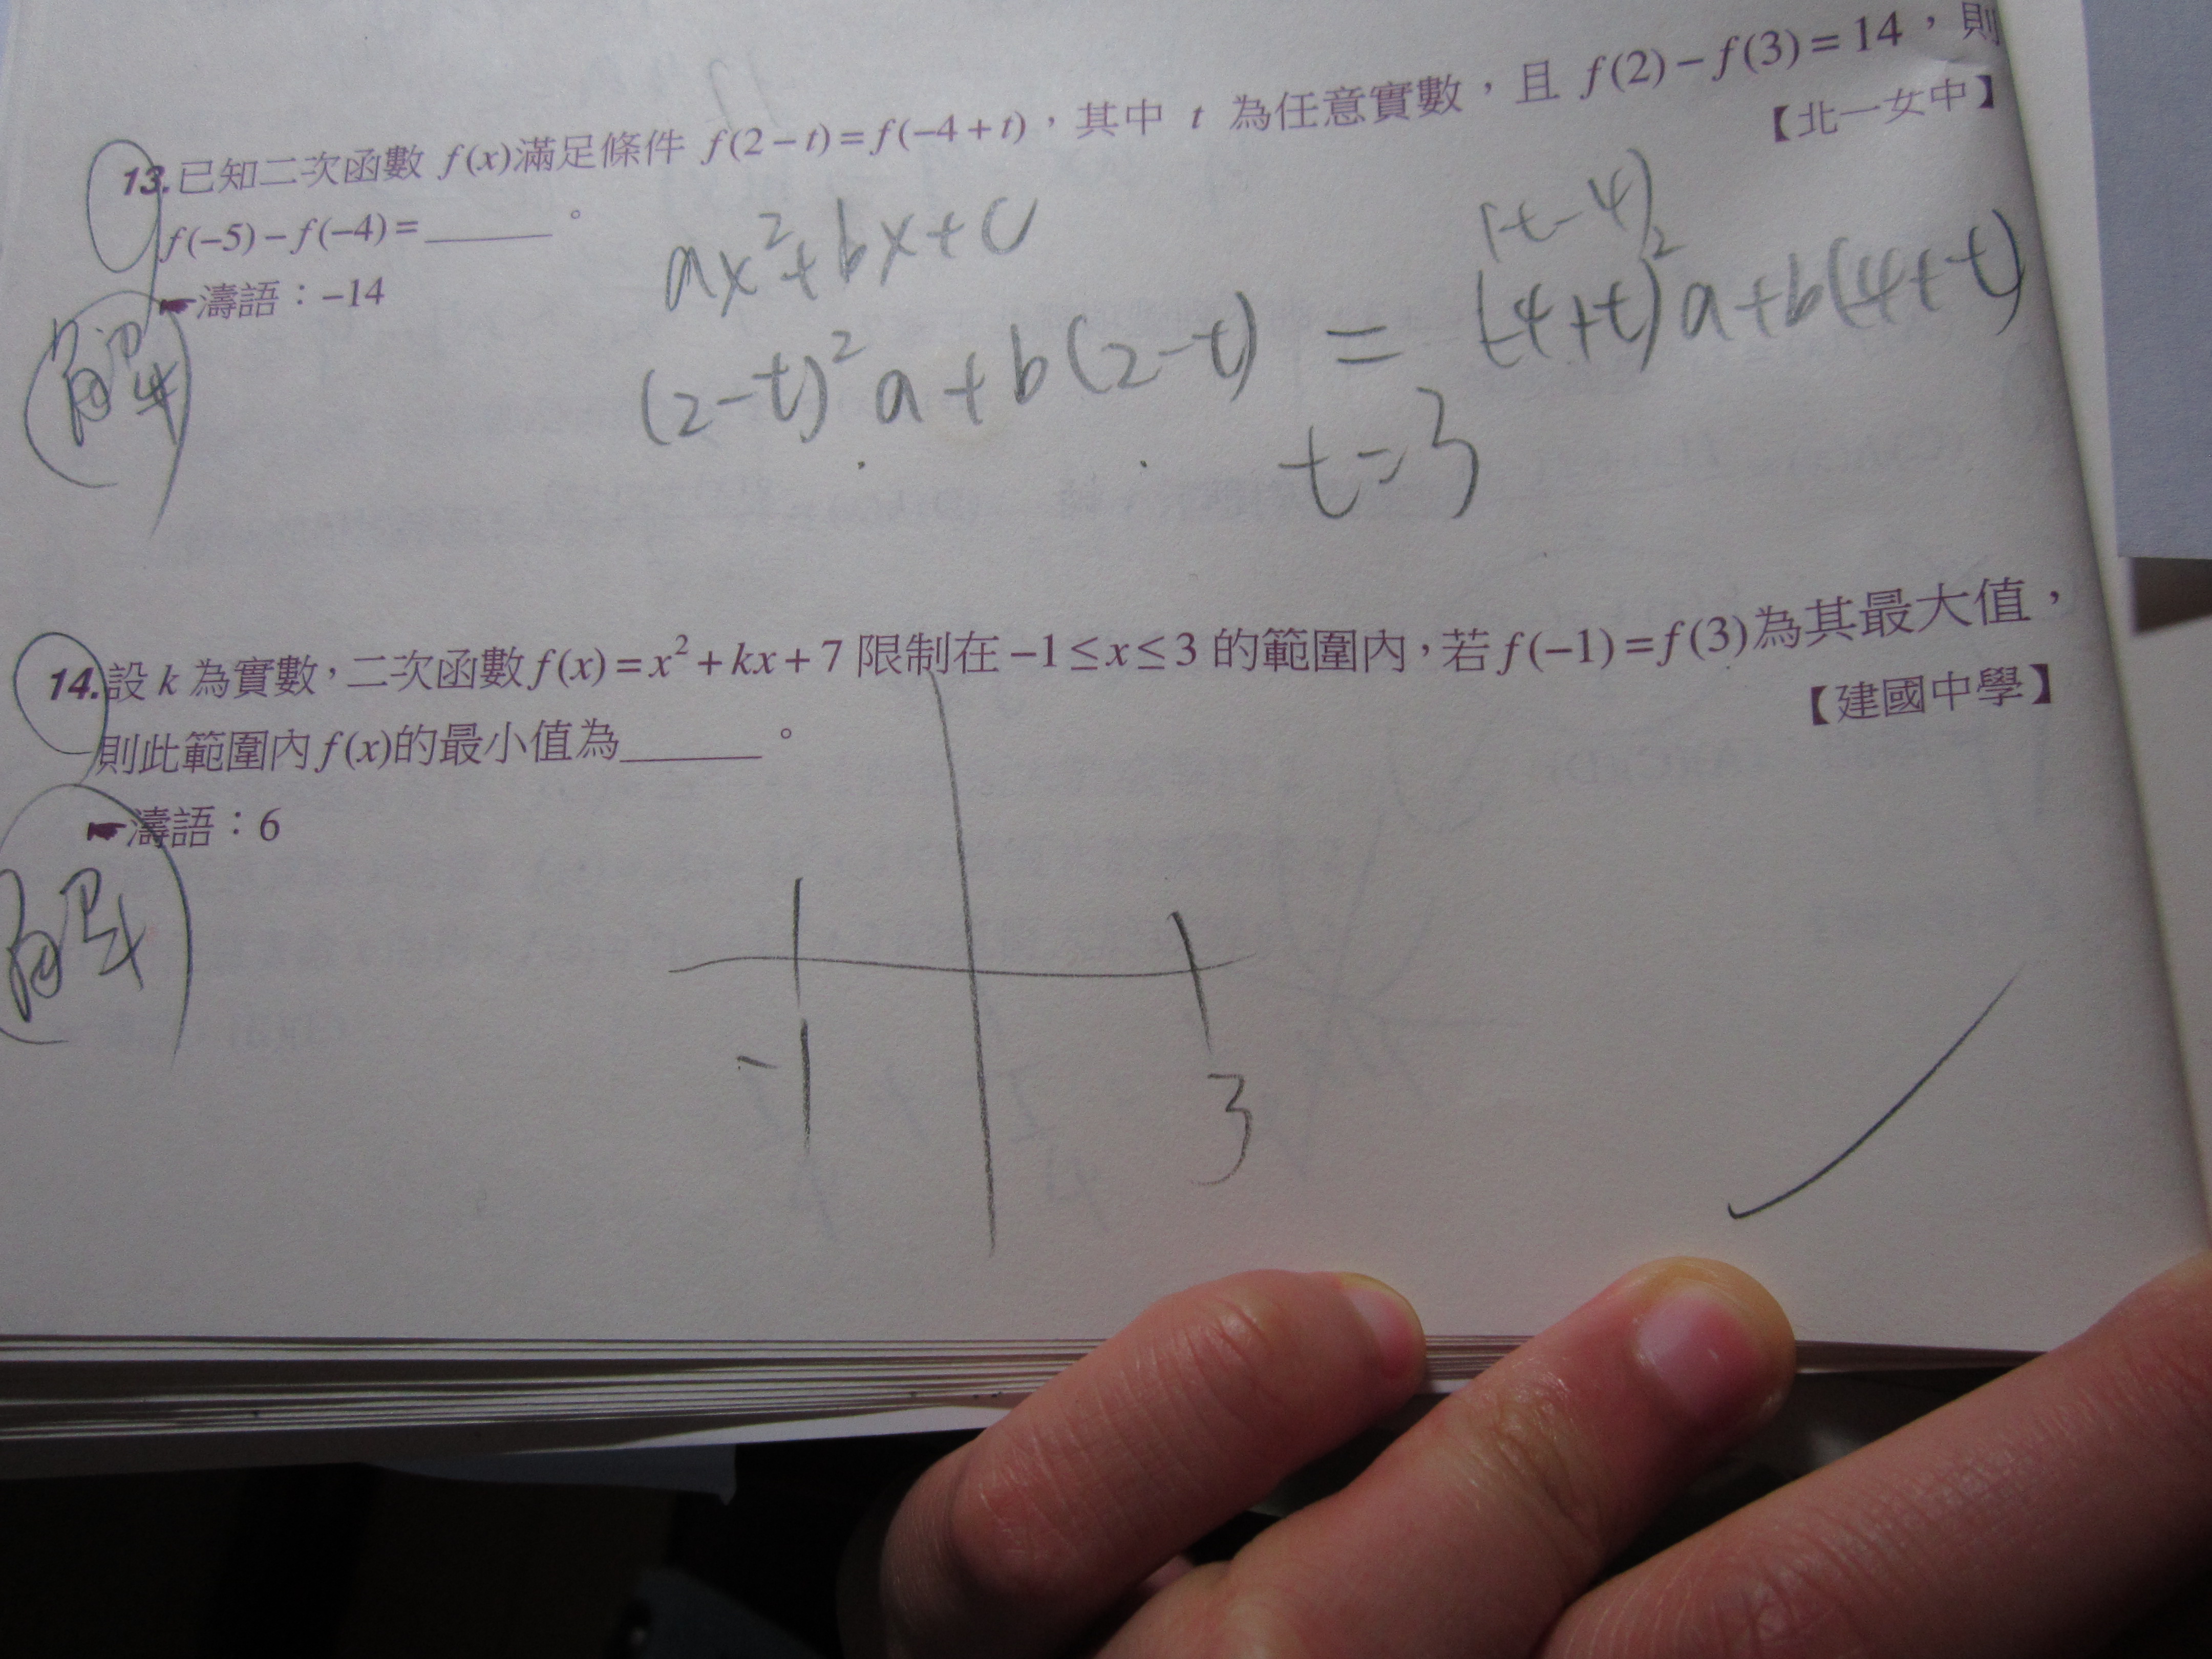 13.已知二次函數 f(x)滿足條件 f(2−t)=f(−4+t),其中 t 為任意實數,且 f(2)−f(3)=14,則
【北一女中】
f(−5)−f(−4)=______。
☛濤語:−14
解
ax²+bx+c
(t-4)
(2-t)²a+b(2-t) = (-4+t)²a+b(4+t)
t=3
14.設 k 為實數,二次函數 f(x)=x²+kx+7 限制在 −1≤x≤3 的範圍內,若 f(−1)=f(3)為其最大值,
【建國中學】
則此範圍內 f(x)的最小值為______。
☛濤語:6
解
-1 3